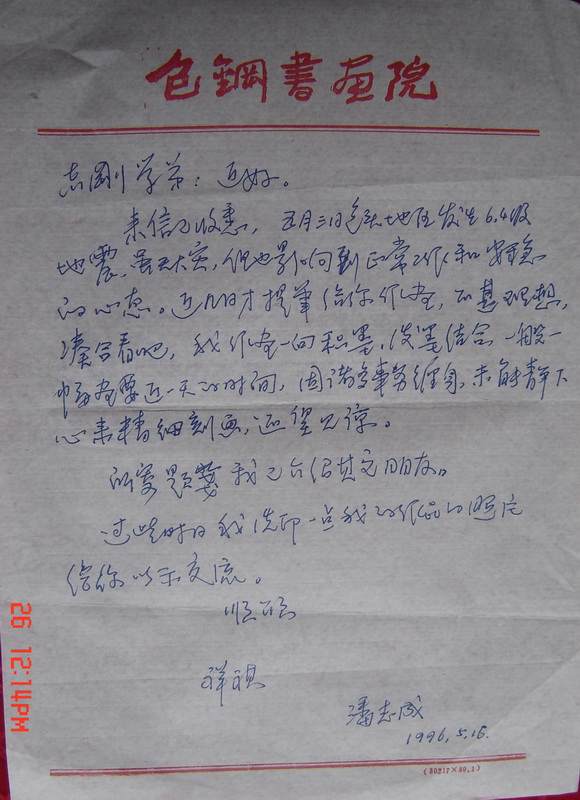 包鋼書画院
志刚学弟：近好。
来信已收悉，五月三日包头地区发生6.4级
地震，虽无大灾，但也影响到正常工作和安稳
的心态。近几日才提笔给你作画，不甚理想，
凑合看吧，我作画一向积墨，泼墨结合，一般一
幅画要近一天的时间，因诸多事务缠身，未能静下
心来精细刻画，还望见谅。
所要题签我已介绍其它朋友。
过些时日我洗印一点我的作品的照片
给你以示交流。
顺颂
祥祺
潘志成
1996.5.16.
(30217×89.1)
26 12:14PM